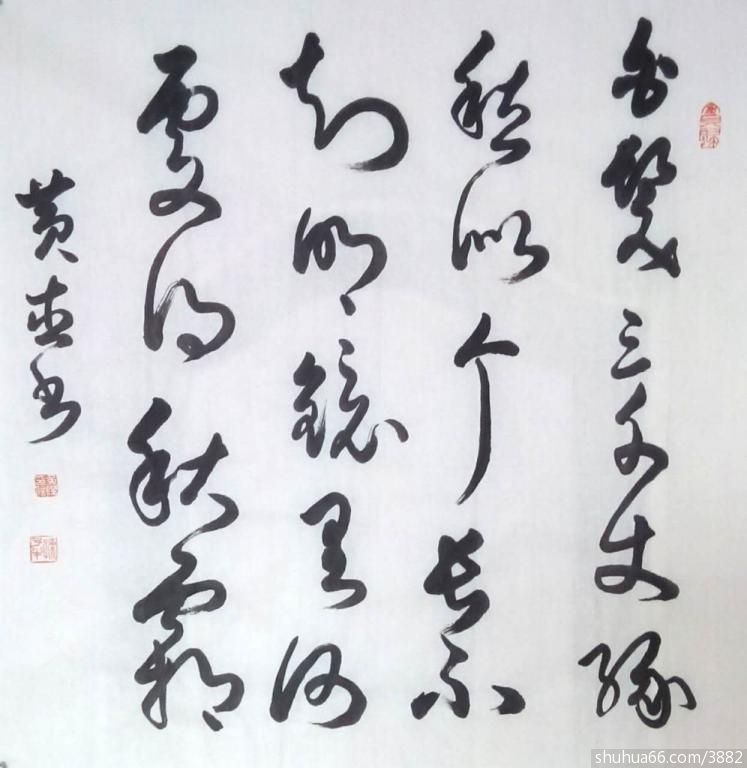 白髮三千丈緣
愁似个長不
知明鏡里何
處得秋霜
黄书
shuhua66.com/3882